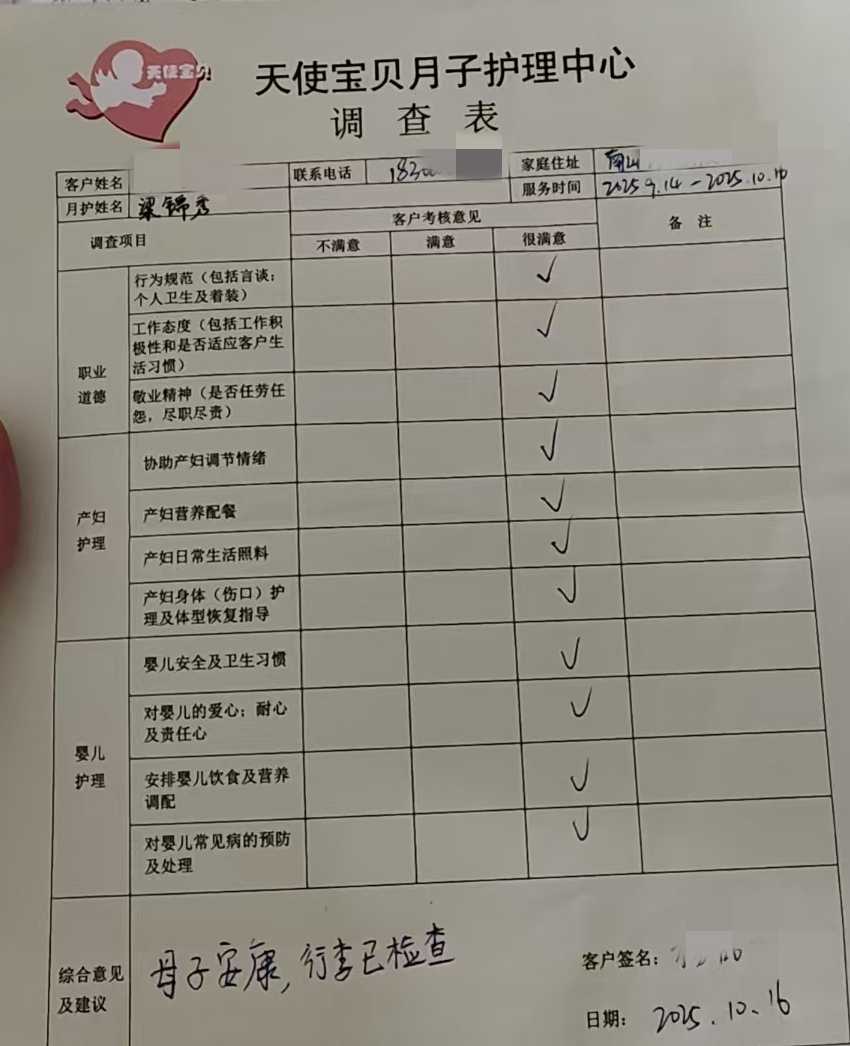 天使宝贝
天使宝贝月子护理中心
调查表
客户姓名 联系电话 183 家庭住址 南山
月护姓名 梁锦秀 服务时间 2025.9.14-2025.10.16
调查项目 客户考核意见 备注
不满意 满意 很满意
职业道德
行为规范（包括言谈；
个人卫生及着装） ✓
工作态度（包括工作积
极性和是否适应客户生
活习惯） ✓
敬业精神（是否任劳任
怨，尽职尽责） ✓
产妇护理
协助产妇调节情绪 ✓
产妇营养配餐 ✓
产妇日常生活照料 ✓
产妇身体（伤口）护
理及体型恢复指导 ✓
婴儿护理
婴儿安全及卫生习惯 ✓
对婴儿的爱心；耐心
及责任心 ✓
安排婴儿饮食及营养
调配 ✓
对婴儿常见病的预防
及处理 ✓
综合意见及建议
母子安康，行李已检查
客户签名：
日期： 2025.10.16